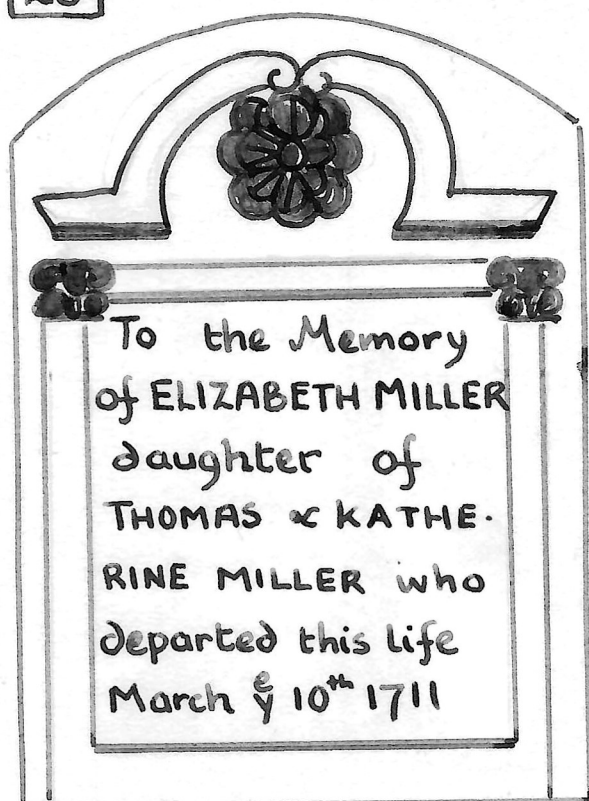 To the Memory
of ELIZABETH MILLER
daughter of
THOMAS & KATHE-
RINE MILLER who
departed this life
March yᵉ 10ᵗʰ 1711